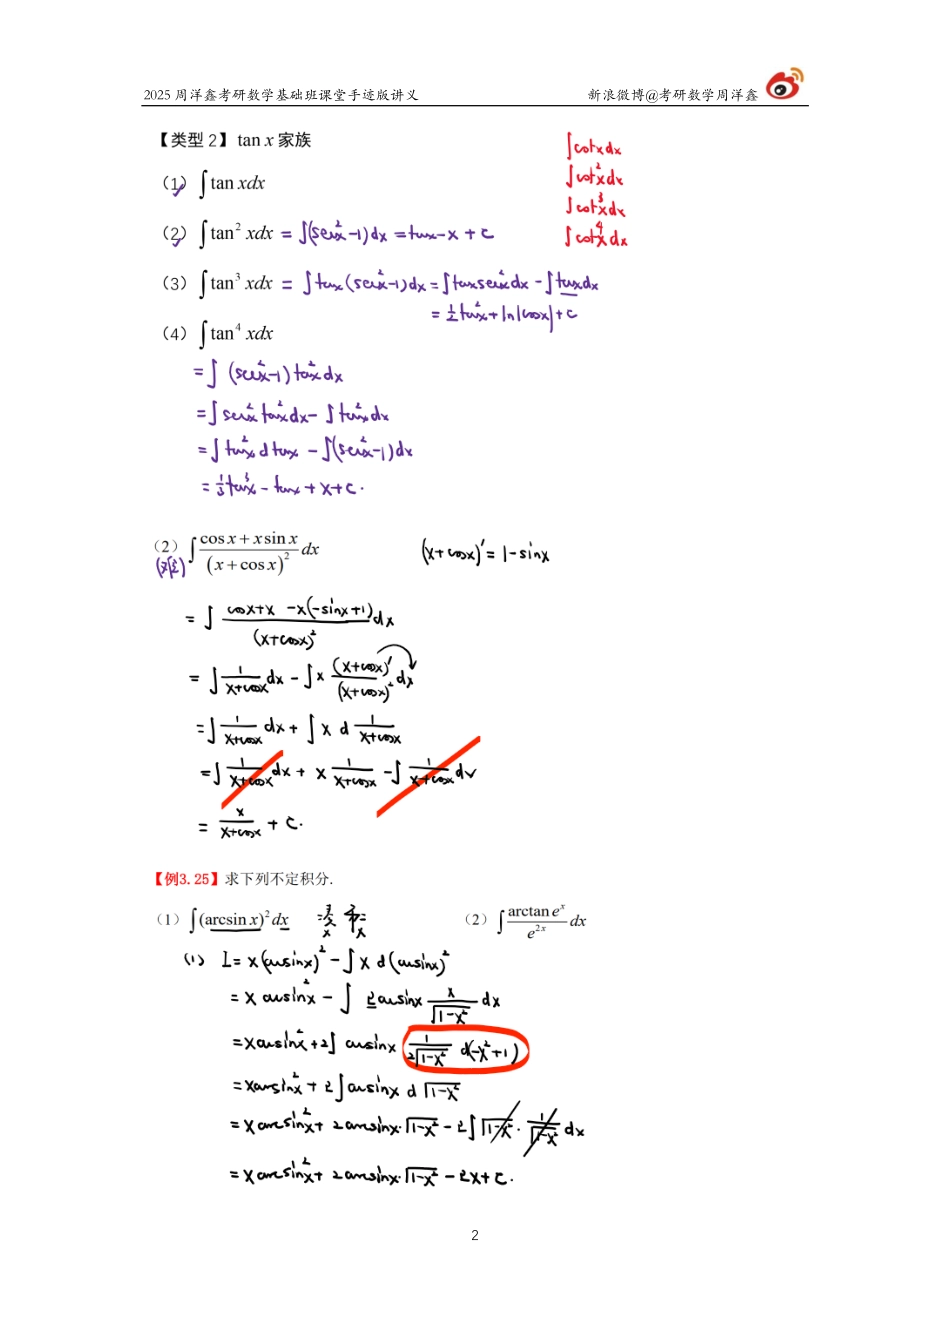 2025 周洋鑫考研数学基础班课堂手迹版讲义 新浪微博@考研数学周洋鑫
【类型 2】 tan x 家族
∫cotxdx
∫cot²xdx
∫cot³xdx
∫cot⁴xdx
（1） ∫ tan xdx
（2） ∫ tan² xdx = ∫(sec²x-1)dx = tanx-x+c
（3） ∫ tan³ xdx = ∫tanx(sec²x-1)dx = ∫tanxsec²xdx - ∫tanxdx
= 1/2 tan²x + ln|cosx| + c
（4） ∫ tan⁴ xdx
= ∫ (sec²x-1) tan²xdx
= ∫sec²x tan²xdx - ∫tan²xdx
= ∫tan²x d tanx - ∫(sec²x-1)dx
= 1/3 tan³x - tanx + x + c.
（2） ∫ (cos x + x sin x)/(x + cos x)² dx (x+cosx)' = 1-sinx
= ∫ (cosx+x -x(-sinx+1))/(x+cosx)² dx
= ∫ 1/(x+cosx) dx - ∫x (x+cosx)'/(x+cosx)² dx
= ∫ 1/(x+cosx) dx + ∫ x d 1/(x+cosx)
= ∫ 1/(x+cosx) dx + x 1/(x+cosx) - ∫ 1/(x+cosx) dx
= x/(x+cosx) + C.
【例3.25】求下列不定积分.
（1） ∫ (arcsin x)² dx （2） ∫ (arctan eˣ)/e²ˣ dx
(1) I = x(arcsinx)² - ∫ x d(arcsinx)²
= x arcsin²x - ∫ 2arcsinx x/√(1-x²) dx
= xarcsin²x + 2∫ arcsinx 1/(2√(1-x²)) d(-x²+1)
= xarcsin²x + 2∫arcsinx d √(1-x²)
= xarcsin²x + 2arcsinx·√(1-x²) - 2∫√(1-x²)· 1/√(1-x²) dx
= xarcsin²x + 2arcsinx·√(1-x²) - 2x + C.
2